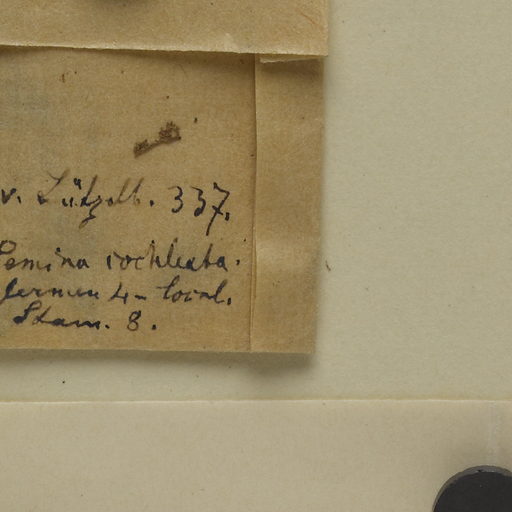 v. Lützelb. 337.
Semina cochleata.
Germen 4-local.
Stam. 8.